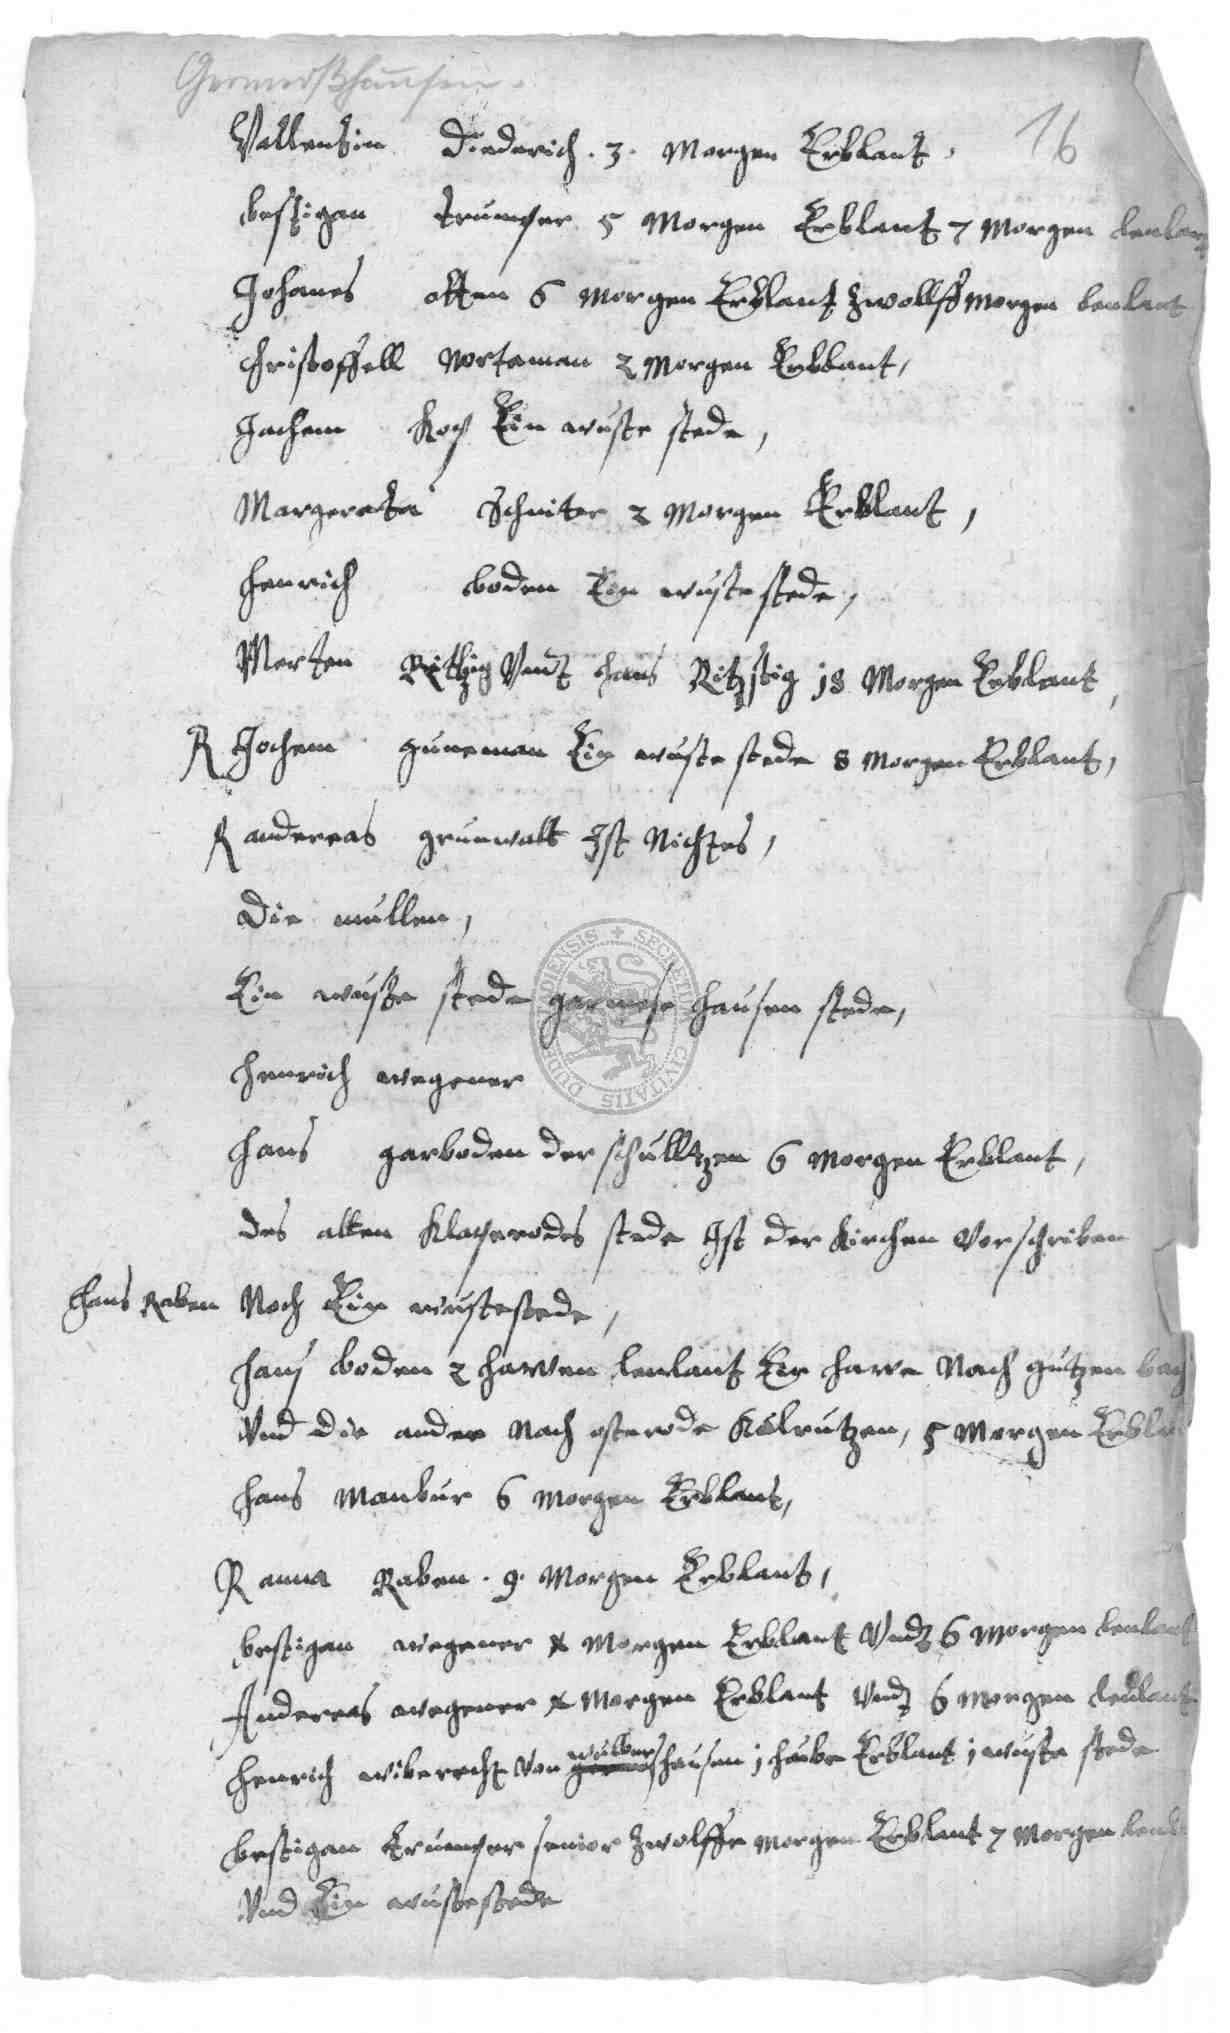 Germershausen.
16
Vallentin Diederich . 3 . Morgen Erblant,
bestigan trumper 5 Morgen Erblant 7 Morgen lenlant
Johanes otten 6 morgen Erblant Zwollff Morgen lenlant
Christoffell Nortaman 2 Morgen Erblant,
Jachem Koch Ein wuste stede,
Margereta Schniter 2 Morgen Erblant,
Henrich boden Ein wuste stede,
Merten Ritzig Vndt Hans Ritzstig 18 Morgen Erblant,
R Jochem guneman Ein wuste stede 8 Morgen Erblant,
R andereas grunwalt Ist Nichtes,
Die mullen,
Ein wuste stede germese hausen stede,
Henrich wegener
Hans garboden der schulltzen 6 Morgen Erblant,
Des alten Klaperodes stede Ist der Kirchen Vorschriben
Hans Raben Noch Ein wustestede,
Hans boden 2 harven lenlant Ein harve Nach gutzen bach
Vnd die ander Nach osterode 5 Morgen Erblant
Hans Manbur 6 Morgen Erblant,
R anna Raben . 9 . Morgen Erblant,
bestigan wegener x Morgen Erblant Vndt 6 Morgen lenlant
Andereas wegener x Morgen Erblant Vndt 6 Morgen lenlant
Henrich wiberecht Von wulbershausen 1 haube Erblant 1 wuste stede
bestigan trumper senior Zwolffe Morgen Erblant 7 Morgen lenl
Vnd Ein wustestede
DUDERSTADIENSIS SECRETUM CIVITATIS